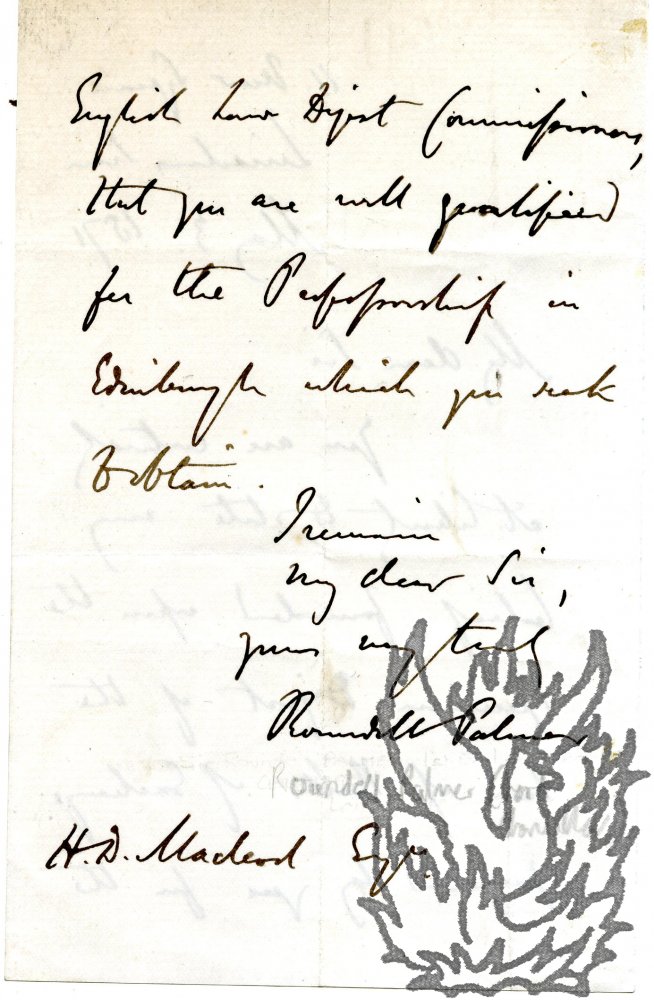 English Law Digest Commissioners,
that you are well qualified
for the Professorship in
Edinburgh which you seek
to obtain.
I remain
my dear Sir,
yours very truly
Roundell Palmer
Roundell Palmer
H. D. Macleod Esqr.